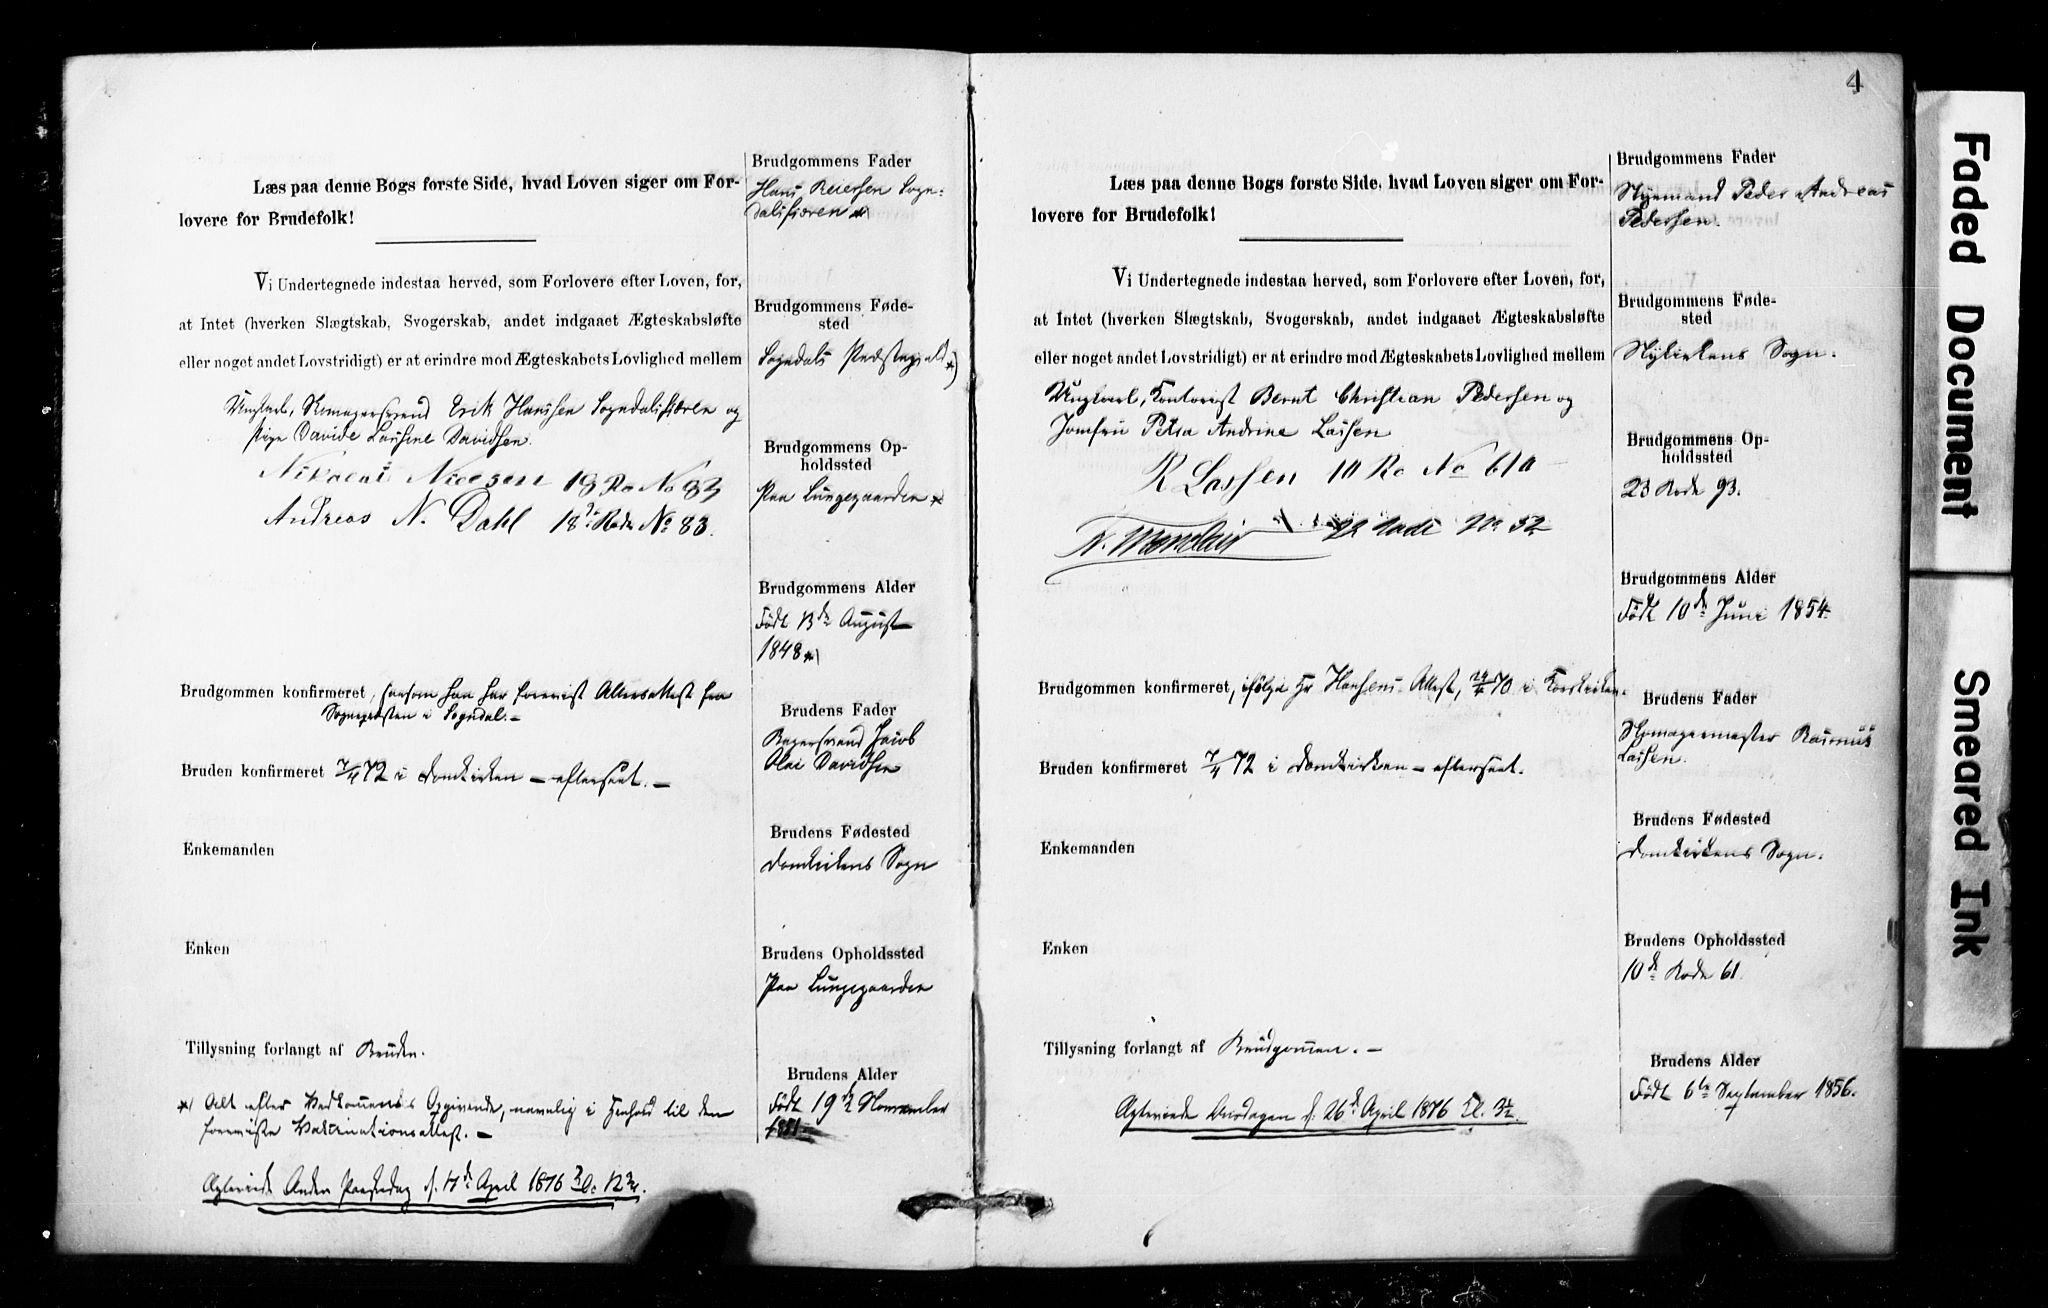 Læs paa denne Bogs første Side, hvad Loven siger om For-
lovere for Brudefolk!
Vi Undertegnede indestaa herved, som Forlovere efter Loven, for,
at Intet (hverken Slægtskab, Svogerskab, andet indgaaet Ægteskabsløfte
eller noget andet Lovstridigt) er at erindre mod Ægteskabets Lovlighed mellem
Ungkarl, Skomagersvend Erik Hanssen Sogndalsfjæren og
Pige Davide Davidsen.
Nikolai Nielsen 18 Ro No 83
Andreas N. Dahl 18de Rode No 83.
Brudgommen konfirmeret, saasom han har forevist Altersattest fra
Sognepresten i Sogndal. –
Bruden konfirmeret 7/4 72 i Domkirken – efterseet. –
Enkemanden
Enken
Tillysning forlangt af Bruden.
*) Alt efter Vedkommendes Opgivende, navnlig i Henhold til den
foreviste Vaktinationsattest. –
Ægteviede Anden Paaskedag d. 17de April 1876 Kl. 12
Brudgommens Fader
Hans Reiersen Sogn-
dalsfjæren *)
Brudgommens Føde-
sted
Sogndals Præstegjeld *)
Brudgommens Op-
holdssted
Paa Lungegaarden *
Brudgommens Alder
Født 13de August
1848 *)
Brudens Fader
Bagersvend Jacob
Olai Davidsen
Brudens Fødested
Domkirkens Sogn
Brudens Opholdssted
Paa Lungegaarden
Brudens Alder
Født 19de November
1851
4
Læs paa denne Bogs første Side, hvad Loven siger om For-
lovere for Brudefolk!
Vi Undertegnede indestaa herved, som Forlovere efter Loven, for,
at Intet (hverken Slægtskab, Svogerskab, andet indgaaet Ægteskabsløfte
eller noget andet Lovstridigt) er at erindre mod Ægteskabets Lovlighed mellem
Ungkarl, Kontorist Bernt Christian Pedersen og
Jomfru Petra Andrine Lassen
R Lassen 10 Ro No 61a
22 Rode No 52
Brudgommen konfirmeret, ifølge Hr Hansens Attest, 70 i Korskirken.
Bruden konfirmeret 7/4 72 i Domkirken – efterseet.
Enkemanden
Enken
Tillysning forlangt af Brudgommen. –
Ægteviede Onsdagen d. 26de April 1876 Kl.
Brudgommens Fader
Styrmand Peder Andreas
Pedersen.
Brudgommens Føde-
sted
Nykirkens Sogn.
Brudgommens Op-
holdssted
23 Rode 93.
Brudgommens Alder
Født 10de Juni 1854.
Brudens Fader
Skomagermester Rasmus
Lassen.
Brudens Fødested
Domkirkens Sogn.
Brudens Opholdssted
10de Rode 61.
Brudens Alder
Født 6te September 1856.
Faded Document
Smeared Ink